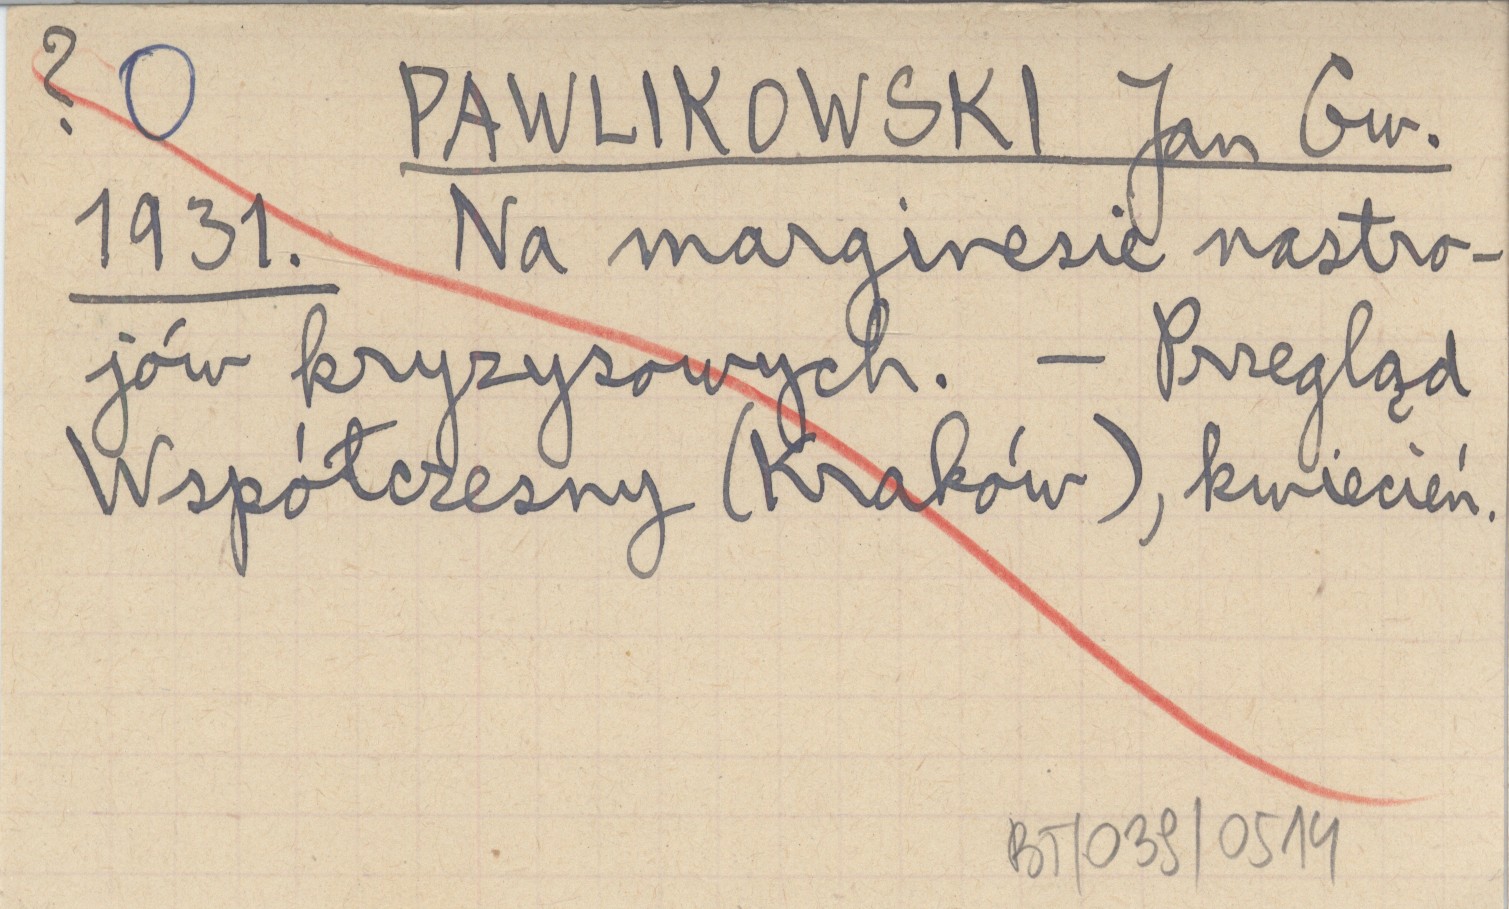 ? O PAWLIKOWSKI Jan Gw.
1931. Na marginesie nastro-
jów kryzysowych. — Przegląd
Współczesny (Kraków), kwiecień.
BT/039/0514